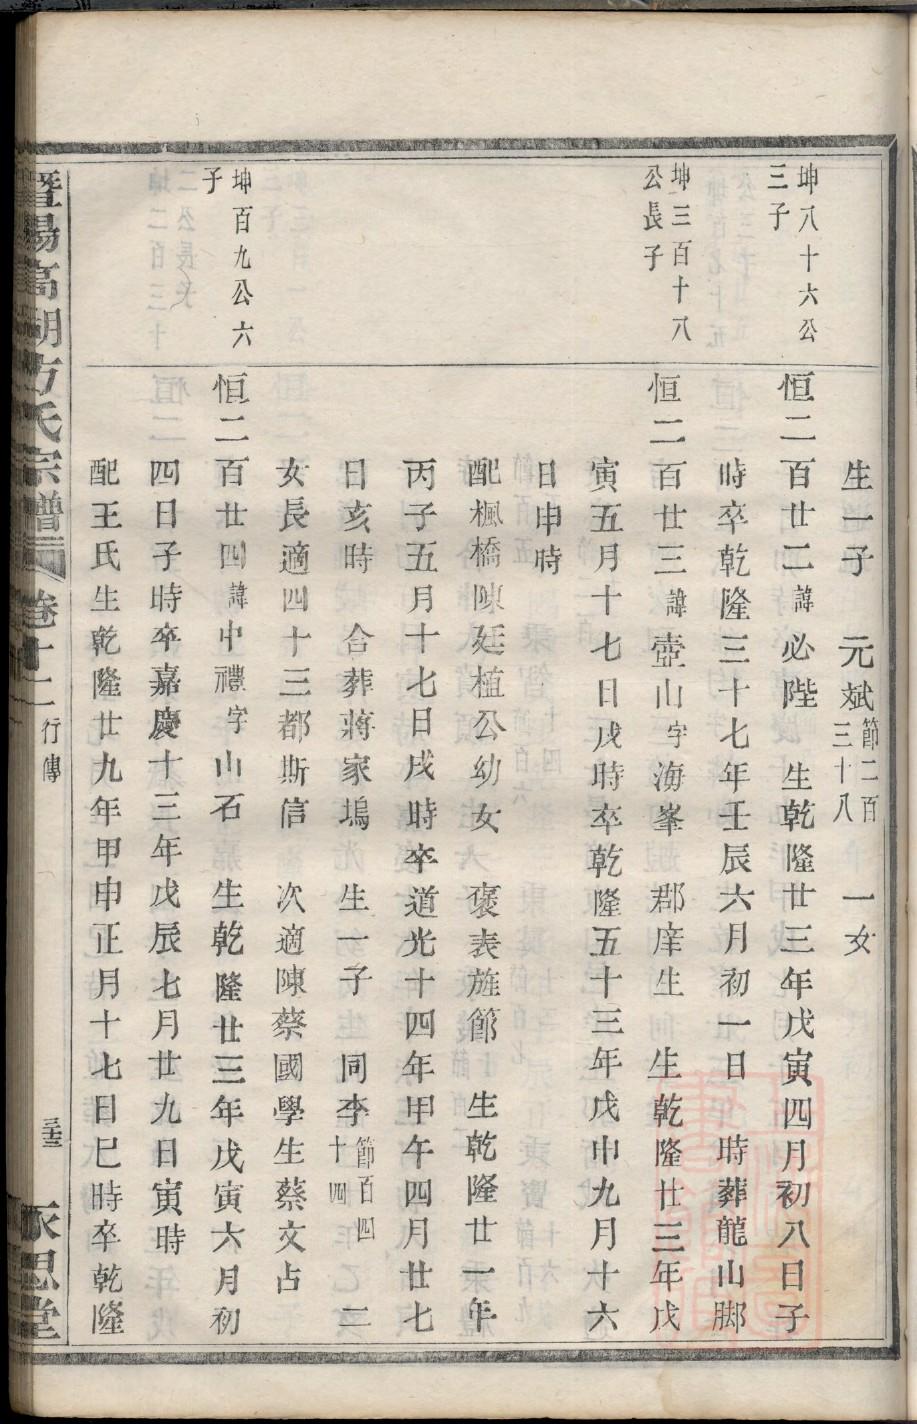 生一子　元斌節二百三十八　一女
坤八十六公三子
恒二百廿二諱必陛　生乾隆廿三年戊寅四月初八日子
時卒乾隆三十七年壬辰六月初一日　時葬龍山脚
坤三百十八公長子
恒二百廿三諱壺山字海峯　郡庠生　生乾隆廿三年戊
寅五月十七日戌時卒乾隆五十三年戊申九月十六
日申時
配楓橋陳廷植公幼女　褒表旌節　生乾隆廿一年
丙子五月十七日戌時卒道光十四年甲午四月廿七
日亥時　合葬蔣家塢　生一子　同李節百四十四　二
女長適四十三都斯信　次適陳蔡國學生蔡文占
坤百九公六子
恒二百廿四諱中禮字山石　生乾隆廿三年戊寅六月初
四日子時卒嘉慶十三年戊辰七月廿九日寅時
配王氏生乾隆廿九年甲申正月十七日巳時卒乾隆
暨陽高湖方氏宗譜　卷十二　行傳　三十三　永思堂